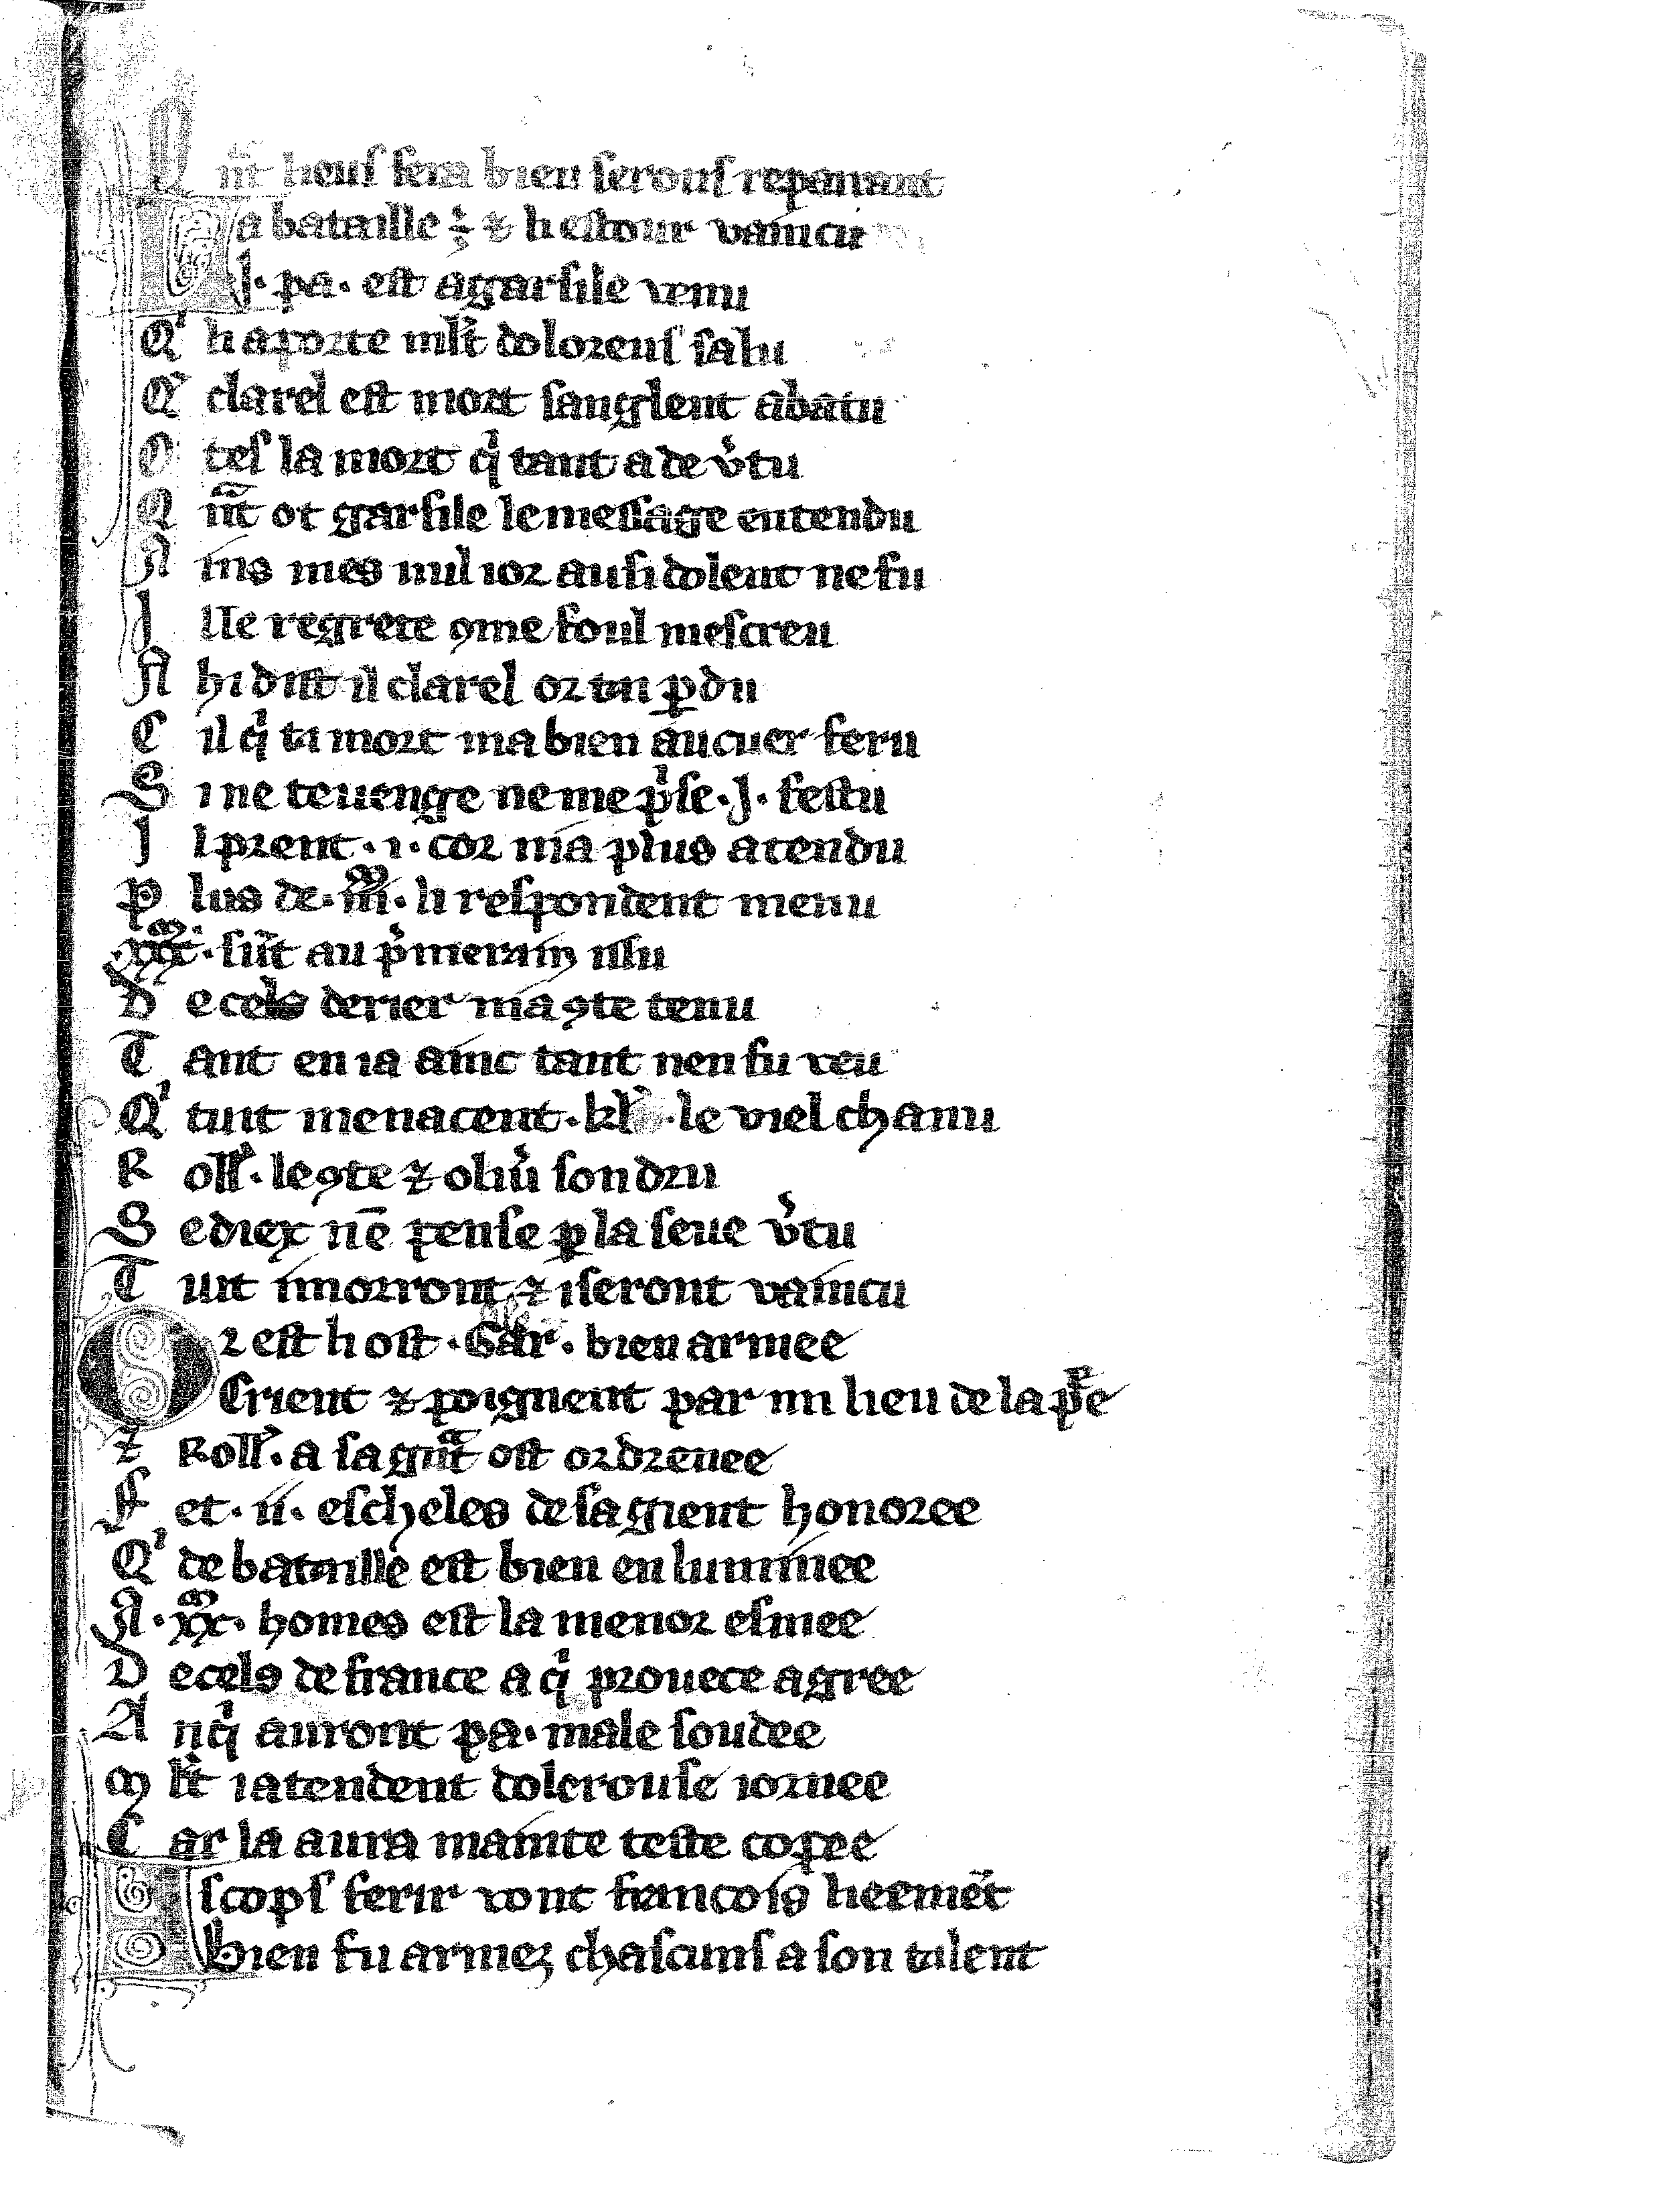 Q nt lieus sera bien serons repairant
L a bataille ÷ ⁊ li estour vaincu
.J. pa. est a garsile venu
Qi li aporte ml't doloreus salu
Q clarel est mort sanglent abatu
O tes la mort qi tant a de v'tu
Q nt ot garsile le message entendu
A ins mes nul ior ausi dolent ne fu
J l le regrete ꝯme foul mescreu
A hi dist il clarel or tai ꝑdu
C il qi ta mort ma bien au cuer feru
S i ne te uenge ne me pise .J. festu
J l prent .i. cor nia plus atendu
P lus de .iiim. li respondent menu
.xxxm. sūt au pimerain issu
D e cels derier nia ꝯte tenu
T ant en ia ainc tant nen fu veu
Qi tuit menacent .kl'. le viel chanu
R oll'. le ꝯte ⁊ oliu' son dru
S e diex nē pense ꝑ la seue v'tu
T uit i morront ⁊ i seront vaincu
O r est li ost .Gar. bien armee
Crient ⁊ poignent par mi lieu de la pree
⁊ Roll'. a sa gnt ost ordrenee
F et .ii. escheles de sa gient honoree
Qi de bataille est bien en luminee
A .xxm. homes est la menor esmee
D e cels de france a qi prouece agree
A nqi auront pa. male soudee
M l't i atendent dolerouse iornee
C ar la aura mainte teste copee
E s cops ferir vont francois lieemēt
bien fu armez chascuns a son talent